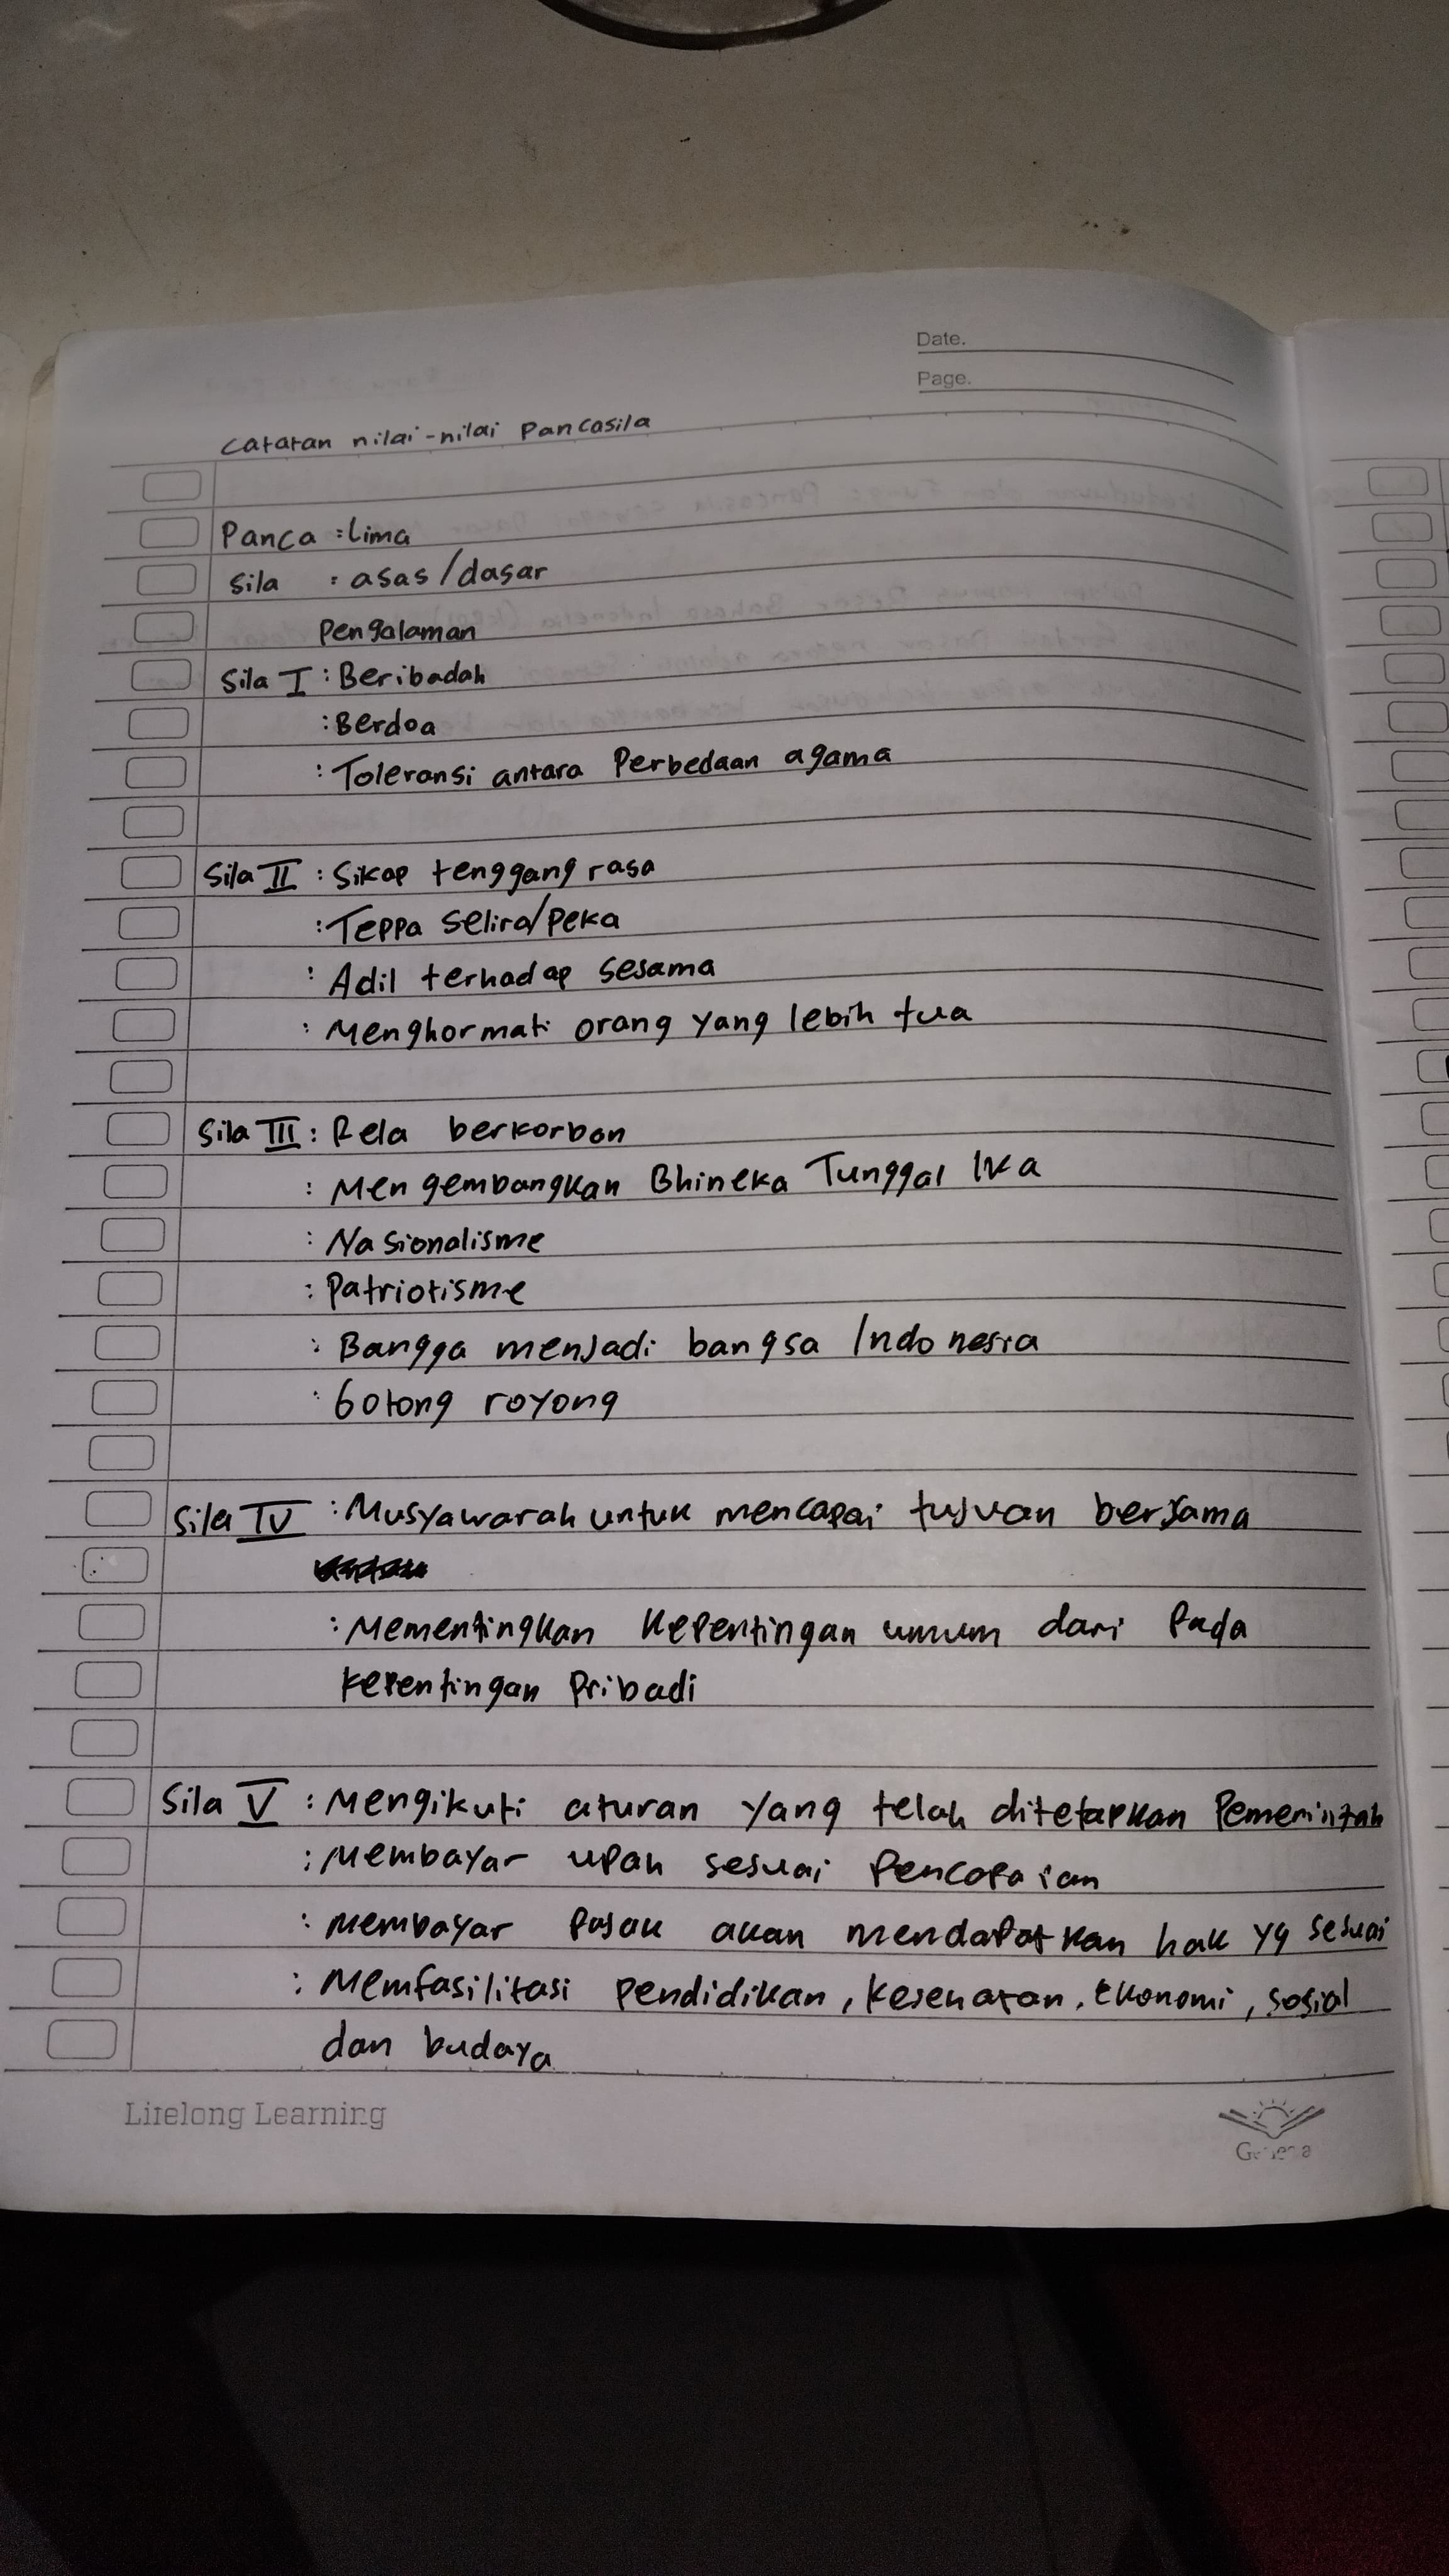 Date.
Page.
Catatan nilai-nilai Pancasila
Panca : Lima
Sila : asas/dasar
Pengalaman
Sila I : Beribadah
: Berdoa
: Toleransi antara Perbedaan agama
Sila II : Sikap tenggang rasa
: Teppa Selira/peka
: Adil terhadap sesama
: Menghormati orang yang lebih tua
Sila III : Rela berkorban
: Mengembangkan Bhineka Tunggal Ika
: Nasionalisme
: Patriotisme
: Bangga menjadi bangsa Indonesia
: Gotong royong
Sila IV : Musyawarah untuk mencapai tujuan bersama
: Mementingkan Kepentingan umum dari Pada
kepentingan Pribadi
Sila V : Mengikuti aturan yang telah ditetapkan Pemerintah
: Membayar upah sesuai Pencapaian
: Membayar Pajak akan mendapatkan hak yg sesuai
: Memfasilitasi Pendidikan, Kesehatan, Ekonomi, sosial
dan budaya
Lifelong Learning